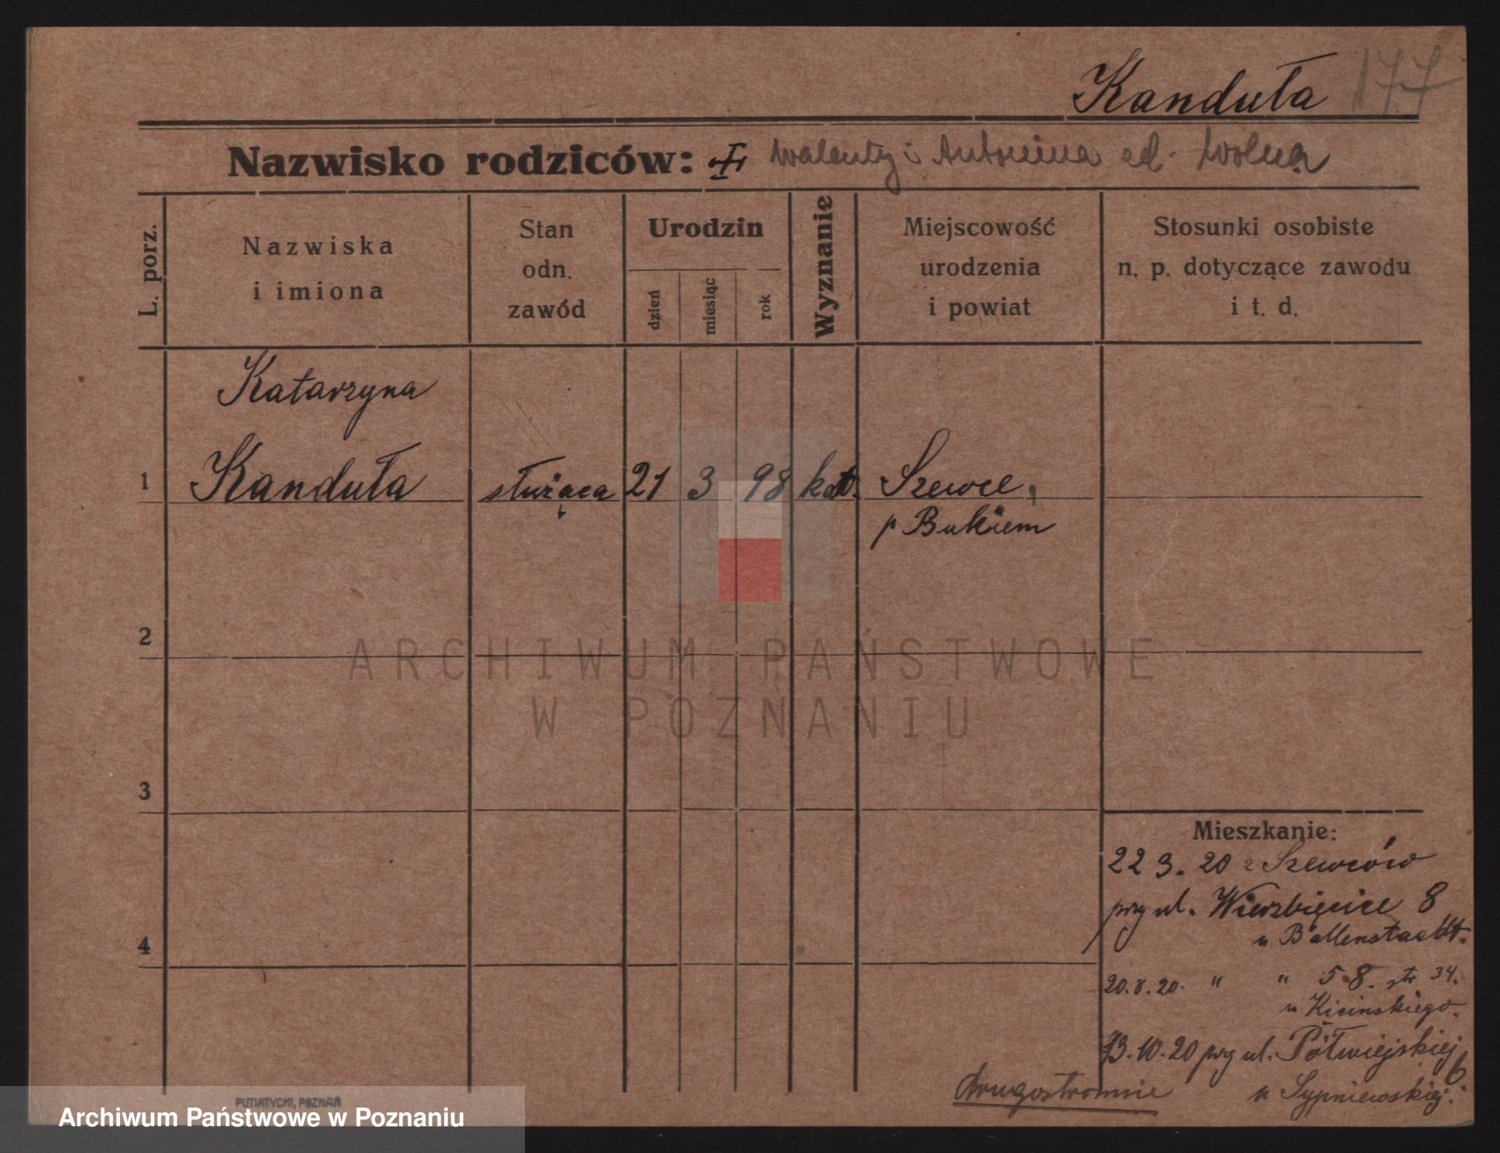 Kanduła 177
Nazwisko rodziców: Walenty i Antonina od. Wolna
L. porz.
Nazwiska
i imiona
Stan
odn.
zawód
Urodzin
dzień
miesiąc
rok
Wyznanie
Miejscowość
urodzenia
i powiat
Stosunki osobiste
n. p. dotyczące zawodu
i t. d.
Katarzyna
1 Kanduła służąca 21 3 98 kat. Szewce,
p Bukiem
2
3
4
Mieszkanie:
22 3. 20 z Szewców
przy ul. Wierzbięcice 8
u Ballenstaedt.
20.8.20. " " 58. str 34.
u Kicinskiego.
13.10.20 przy ul. Półwiejskiej 6
u Sypniewskiej.
drugostronnie
PUTIATYCKI, POZNAŃ
ARCHIWUM PAŃSTWOWE
W POZNANIU
Archiwum Państwowe w Poznaniu